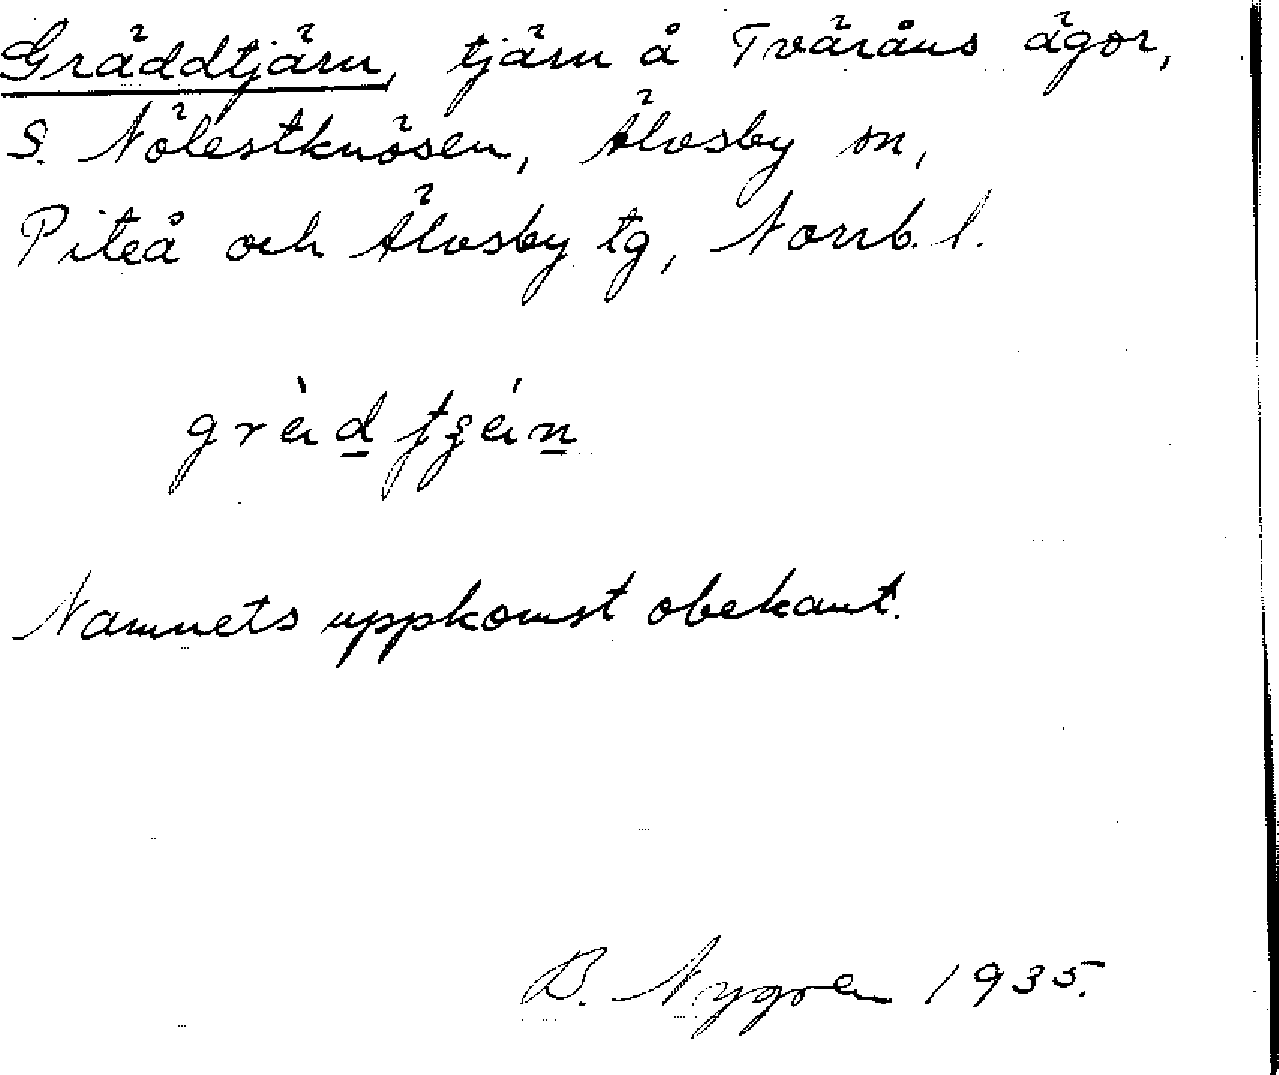 Gräddtjärn, tjärn å Tväråns ägor,
S. Nölestknösen, Älvsby sn,
Piteå och Älvsby tg, Norrb. l.
Namnets uppkomst obekant.
B. Nygren 1935.